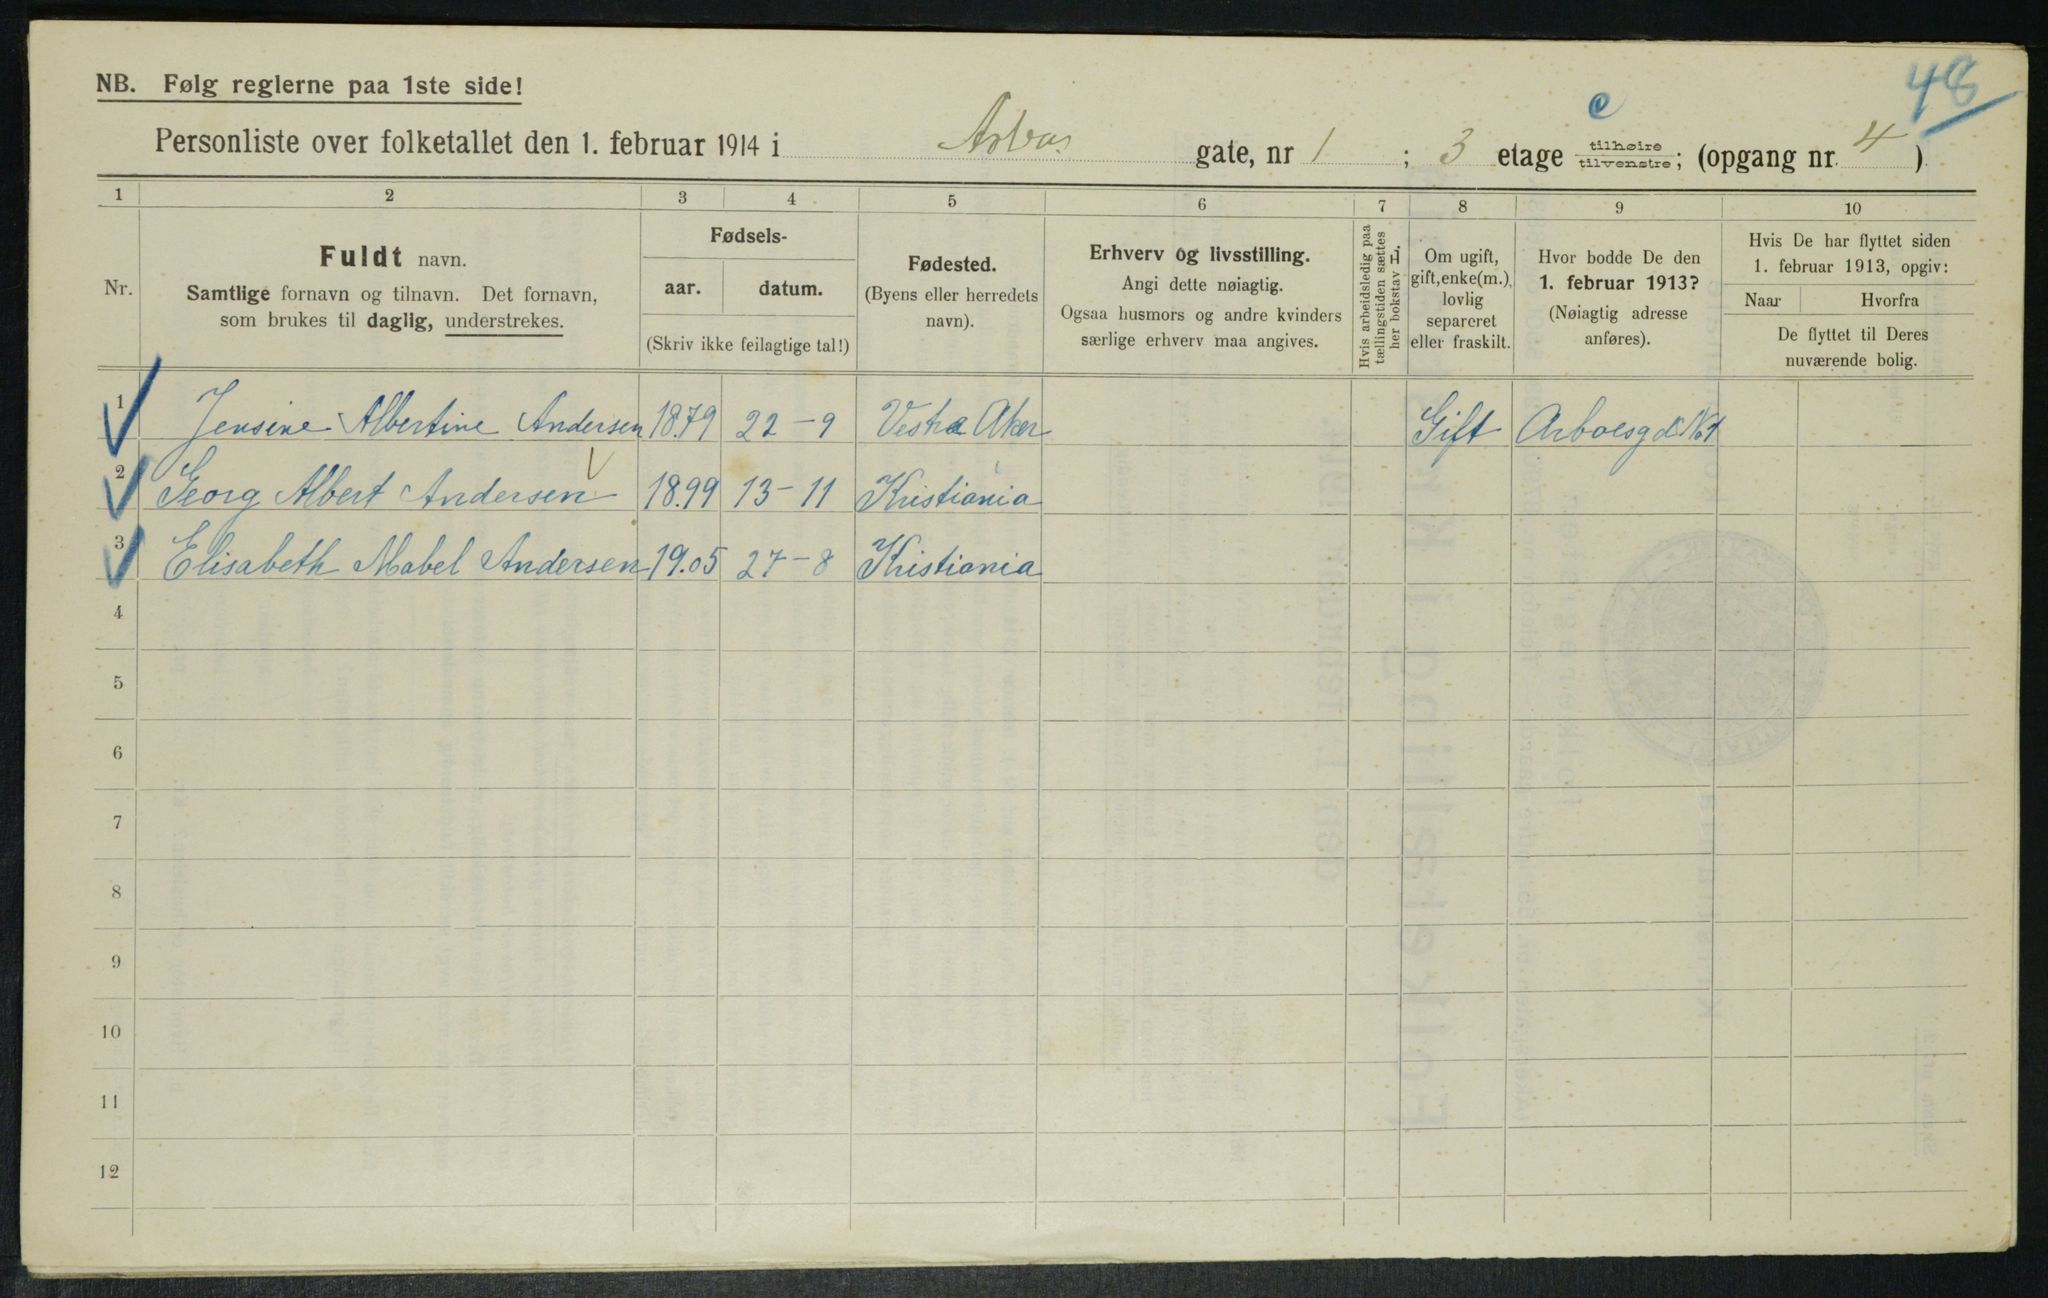 48
NB. Følg reglerne paa 1ste side!
c
Personliste over folketallet den 1. februar 1914 i Arbos gate, nr 1 ; 3 etage tilhøire tilvenstre; (opgang nr. 4 )
1 2 3 4 5 6 7 8 9 10
Nr.
Fuldt navn.
Samtlige fornavn og tilnavn. Det fornavn,
som brukes til daglig, understrekes.
Fødsels-
aar. datum.
(Skriv ikke feilagtige tal!)
Fødested.
(Byens eller herredets
navn).
Erhverv og livsstilling.
Angi dette nøiagtig.
Ogsaa husmors og andre kvinders
særlige erhverv maa angives.
Hvis arbeidsledig paa
tællingstiden sættes
her bokstav L.
Om ugift,
gift, enke(m.),
lovlig
separeret
eller fraskilt.
Hvor bodde De den
1. februar 1913?
(Nøiagtig adresse
anføres).
Hvis De har flyttet siden
1. februar 1913, opgiv:
Naar Hvorfra
De flyttet til Deres
nuværende bolig.
1 Jensine Albertine Andersen 1879 22-9 Vestre Aker Gift Arboesgd. No 1
2 Georg Albert Andersen 18.99 13-11 Kristiania
3 Elisabeth Mabel Andersen 19.05 27-8 Kristiania
4
5
6
7
8
9
10
11
12